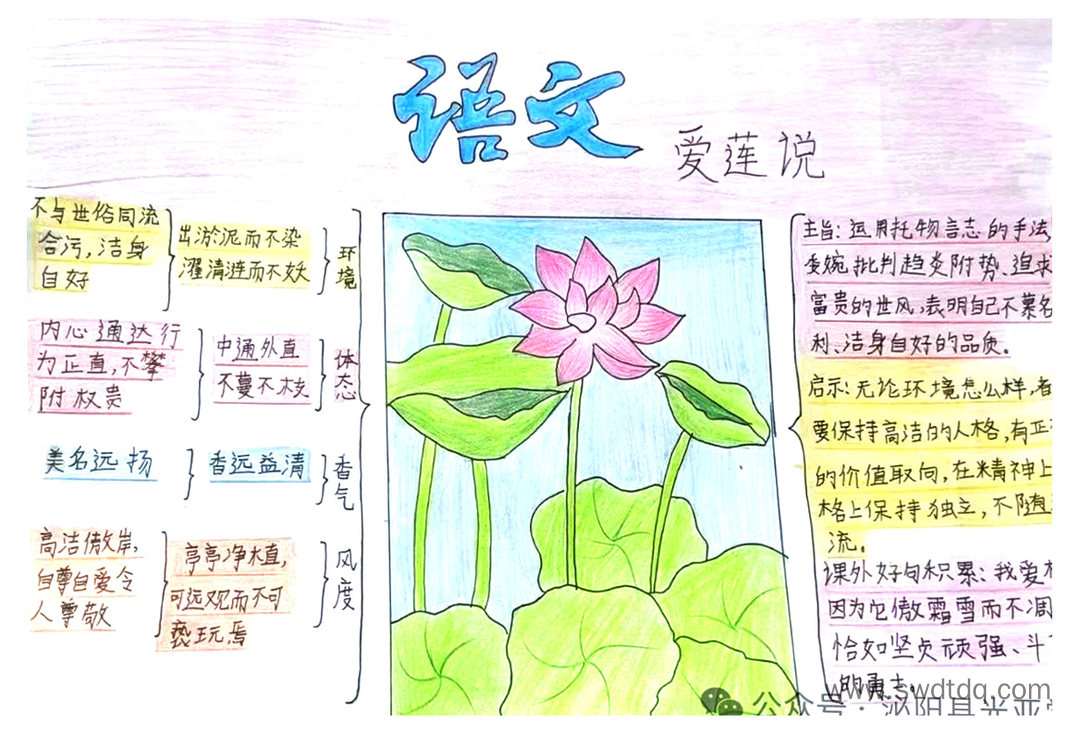 语文
爱莲说
不与世俗同流
合污，洁身
自好
出淤泥而不染
濯清涟而不妖
环境
内心通达行
为正直，不攀
附权贵
中通外直
不蔓不枝
体态
美名远扬
香远益清
香气
高洁傲岸，
自尊自爱令
人尊敬
亭亭净植，
可远观而不可
亵玩焉
风度
主旨：运用托物言志的手法，
委婉批判趋炎附势、追求
富贵的世风，表明自己不慕名
利、洁身自好的品质。
启示：无论环境怎么样，都
要保持高洁的人格，有正
的价值取向，在精神上
格上保持独立，不随
流。
课外好句积累：我爱
因为它傲霜雪而不凋
恰如坚贞顽强、斗
的勇士。
www.swdtdq.com
公众号：泌阳县光亚